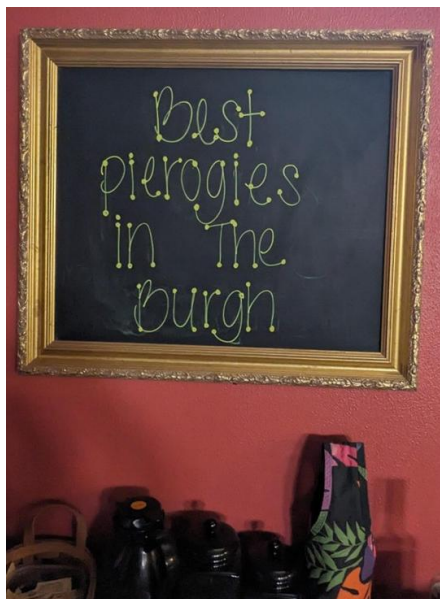 Best
pierogies
in The
Burgh